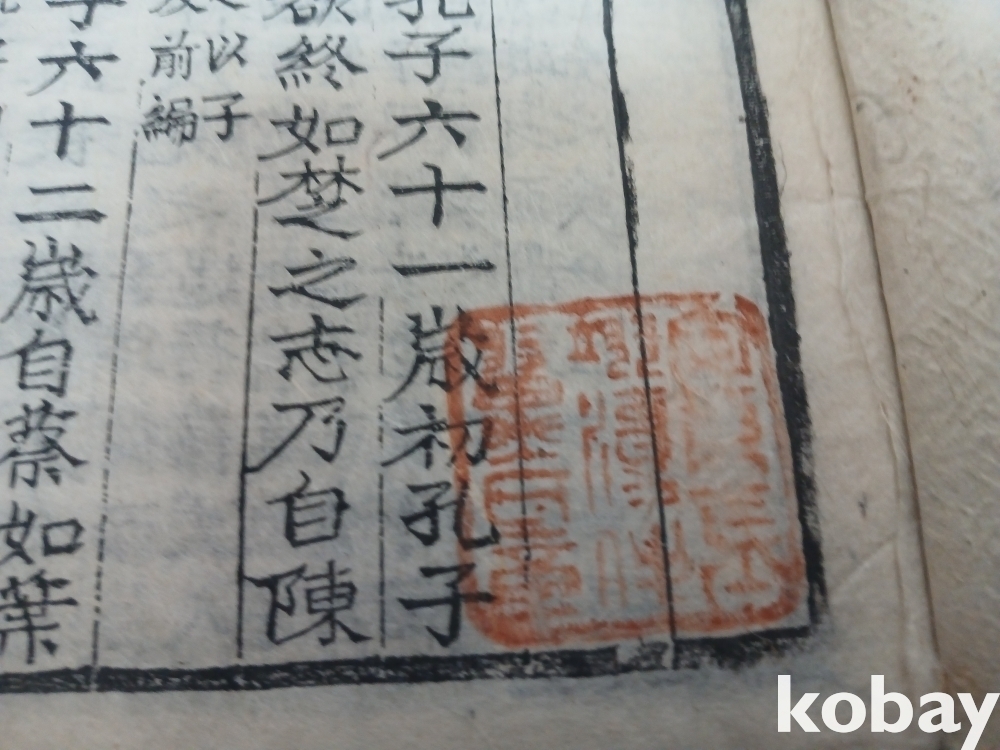 孔子六十一歲初孔子
欲終如楚之志乃自陳
以子
前編
子六十二歲自蔡如葉
kobay